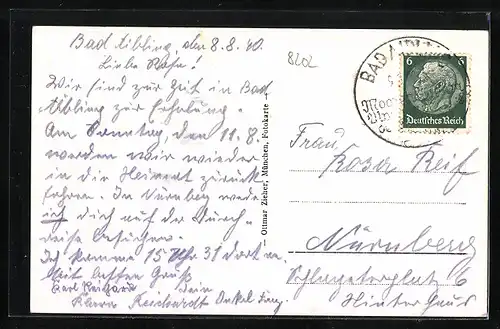 Bad Aibling, den 8.8.40.
Liebe
Wir sind zur Zeit in Bad
Aibling zur Erholung.
Am Sonntag, den 11.8.
werden wir wieder
in die Heimat zurück
fahren. In Nürnberg werde
ich dich auf der Durch-
reise besuchen.
Ich komme 15 Uhr 31 dort an.
Mit besten Gruß
dein
Reichardt Onkel
8202
Ottmar Zieher, München, Fotokarte
BAD AIBLING
6 6
Deutsches Reich
Frau
Rosa Reif
Nürnberg
Schlageterplatz 6
Hinterhaus